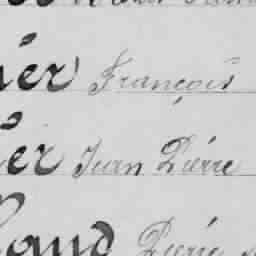 ier François
ier Jean Pierre
aud Pierre